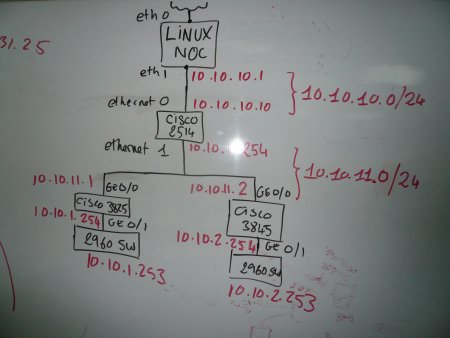 eth 0
31.25
LINUX
NOC
eth 1
10.10.10.1
10.10.10.0/24
ethernet 0
10.10.10.10
CISCO
2514
ethernet 1
254
10.10.11.0/24
10.10.11.1
GE0/0
10.10.11.2
GE0/0
CISCO 3825
CISCO
3845
10.10.1.254
GE0/1
10.10.2.254
GE0/1
2960 SW
2960SW
10.10.1.253
10.10.2.253